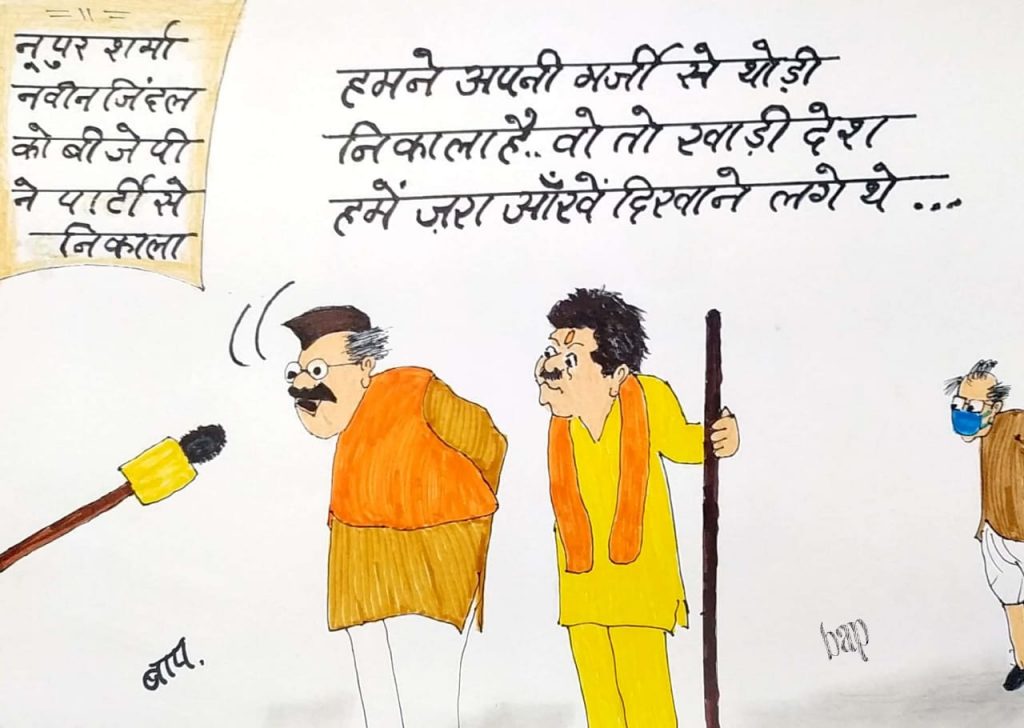 नूपुर शर्मा
नवीन जिंदल
को बीजेपी
ने पार्टी से
निकाला
हमने अपनी मर्जी से थोड़ी
निकाला है.. वो तो खाड़ी देश
हमें ज़रा आँखें दिखाने लगे थे ...
बाप.
bap